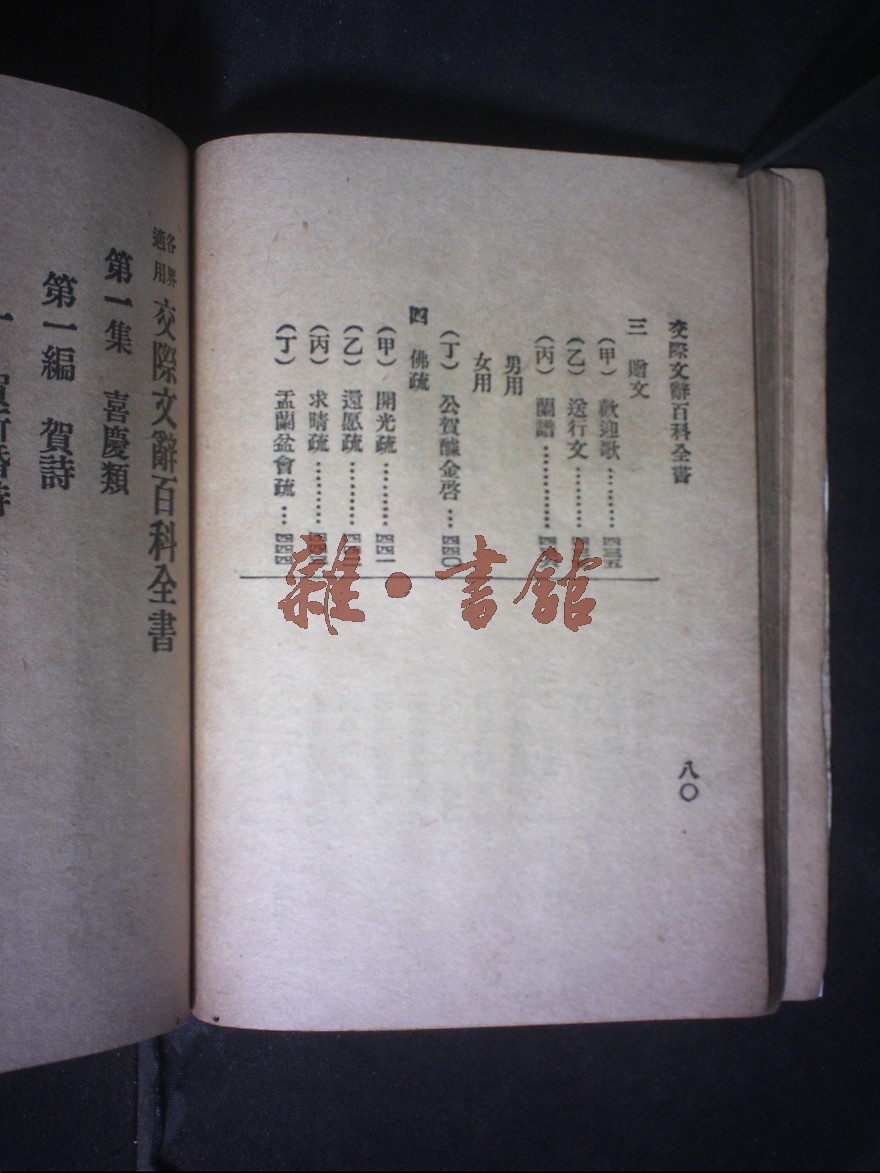 交際文辭百科全書
三　贈文
（甲）歡迎歌………四三五
（乙）送行文………
（丙）蘭譜…………
男用
女用
（丁）公賀醵金啓…四四〇
四　佛疏
（甲）開光疏………四四一
（乙）還愿疏………
（丙）求晴疏………
（丁）盂蘭盆會疏…四四四
八〇
雜·書館
各界適用　交際文辭百科全書
第一集　喜慶類
第一編　賀詩
一